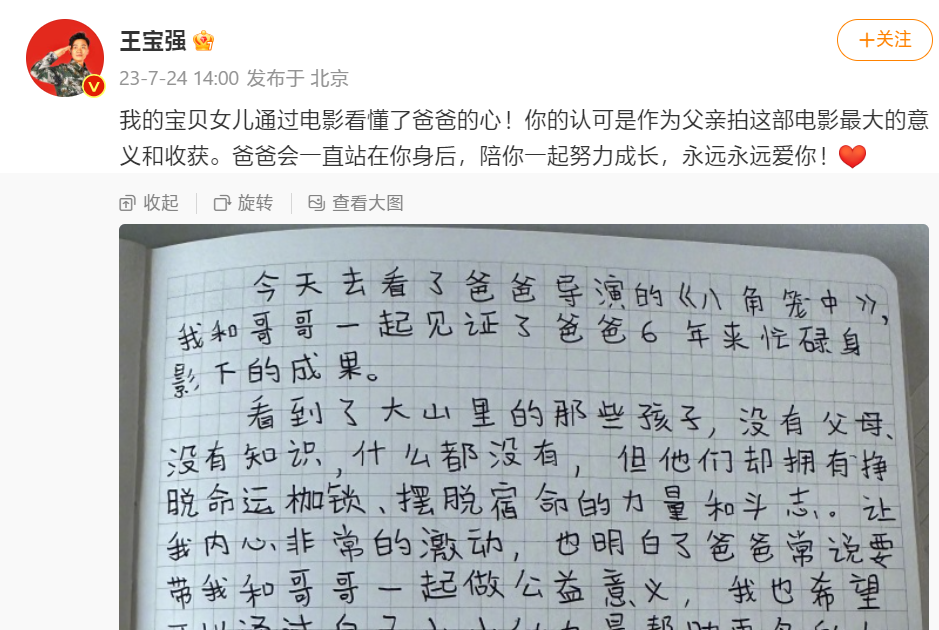 王宝强
+关注
23-7-24 14:00 发布于 北京
我的宝贝女儿通过电影看懂了爸爸的心！你的认可是作为父亲拍这部电影最大的意
义和收获。爸爸会一直站在你身后，陪你一起努力成长，永远永远爱你！
收起 旋转 查看大图
今天去看了爸爸导演的《八角笼中》，
我和哥哥一起见证了爸爸6年来忙碌身
影下的成果。
看到了大山里的那些孩子，没有父母、
没有知识，什么都没有，但他们却拥有挣
脱命运枷锁、摆脱宿命的力量和斗志。让
我内心非常的激动，也明白了爸爸常说要
带我和哥哥一起做公益意义，我也希望